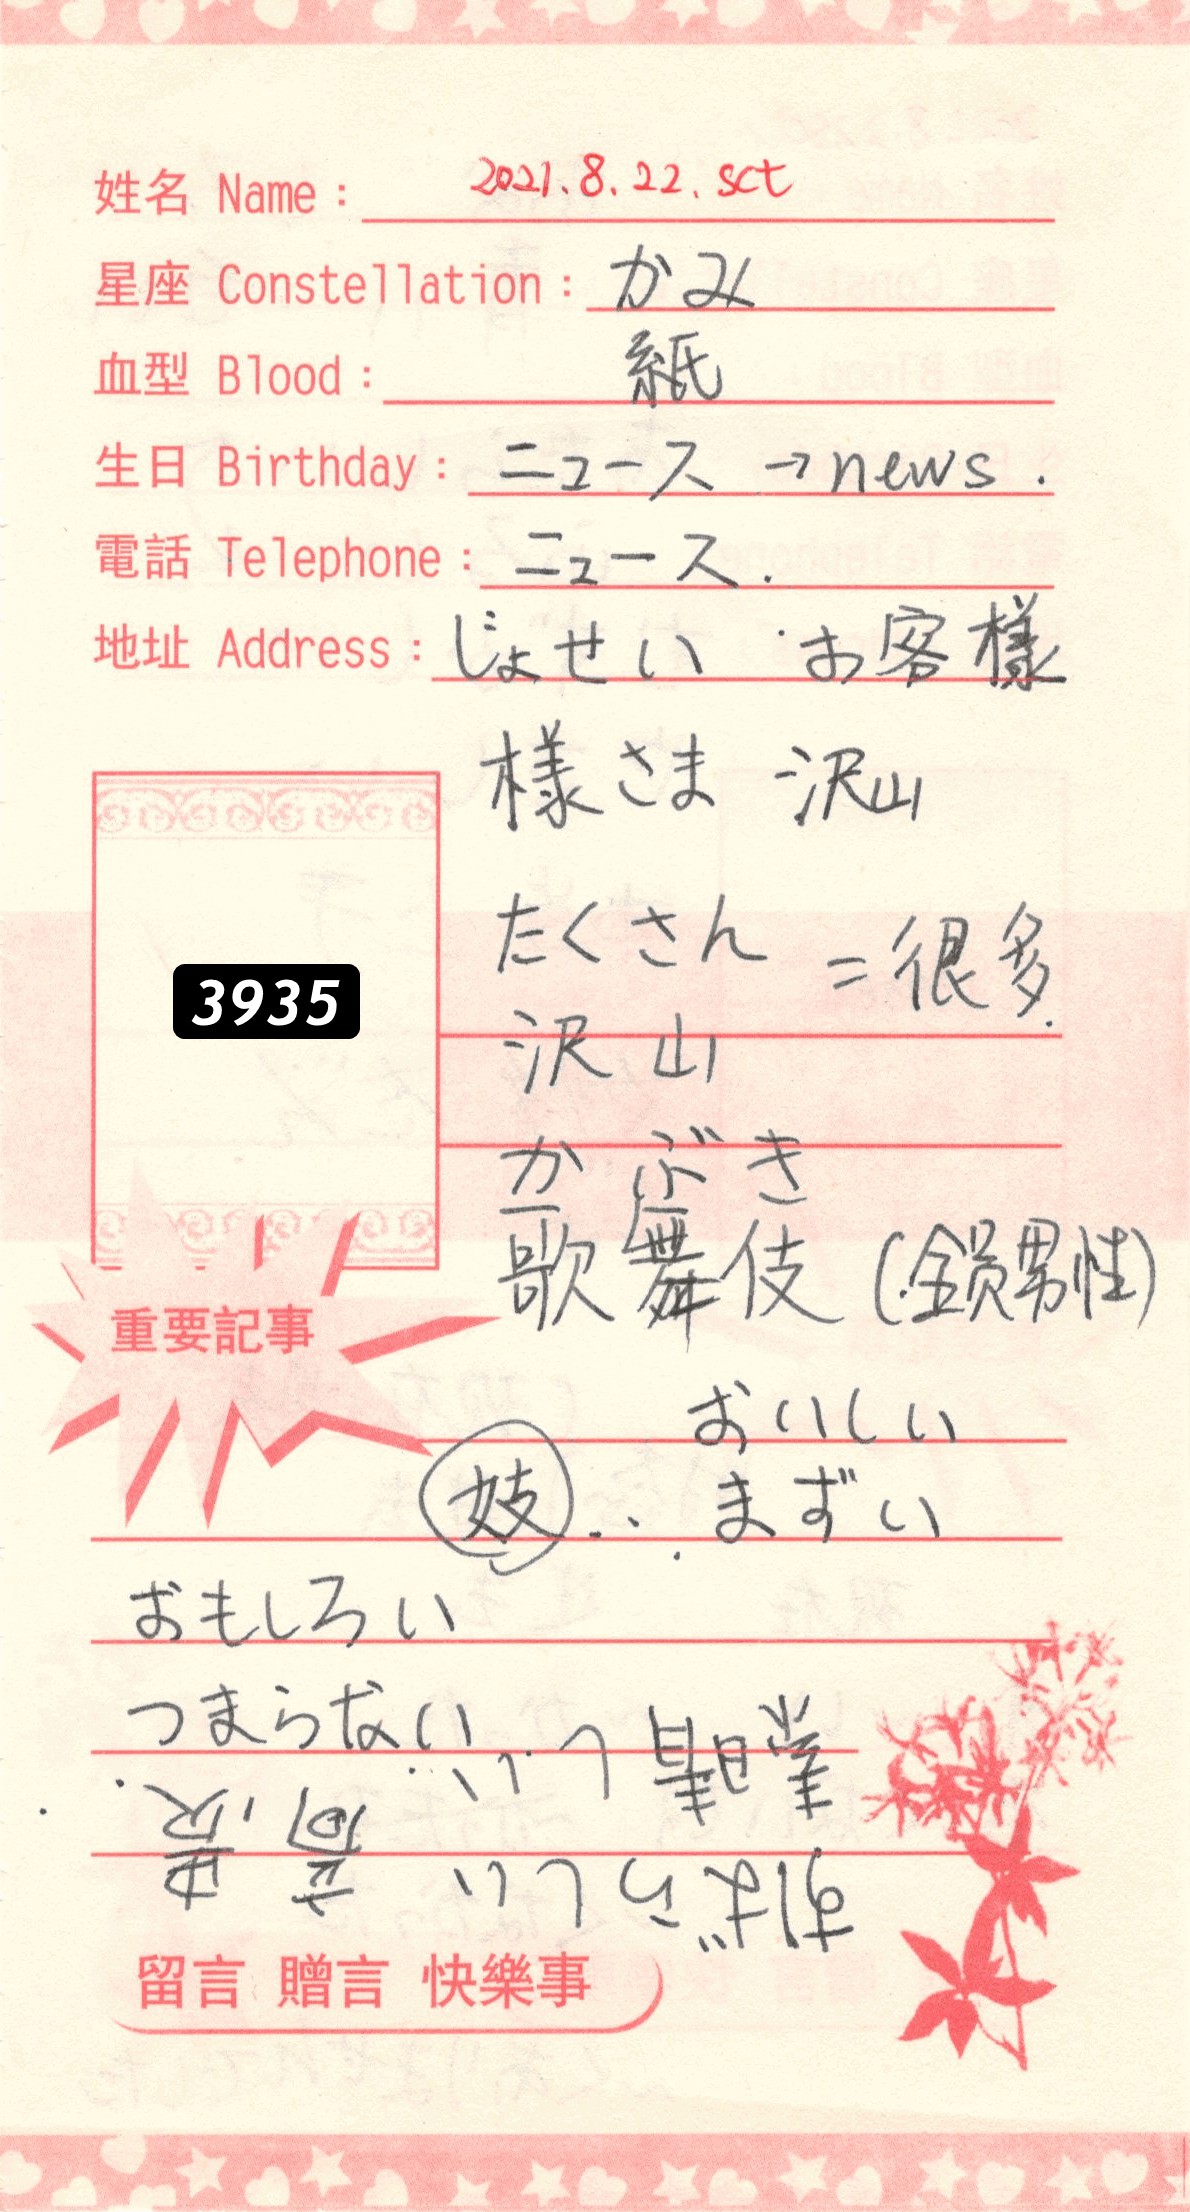 姓名 Name: 2021.8.22.sct
星座 Constellation: かみ
血型 Blood: 紙
生日 Birthday: ニュース →news.
電話 Telephone: ニュース.
地址 Address: じょせい お客様
様さま 沢山
たくさん =很多.
沢山
3935
かぶき
歌舞伎 (全員男性)
重要記事
おいしい
妓 まずい
おもしろい
つまらない
素晴しい
すばらしい
高
留言 贈言 快樂事